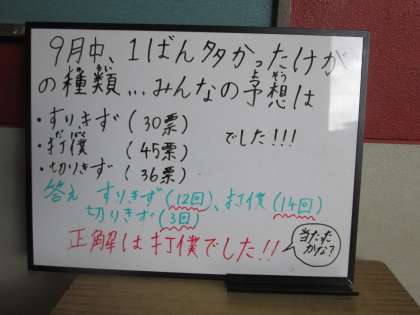 9月中、1ばん多かったけが
の種類...みんなの予想は
・すりきず(30票)
・打僕(45票) でした!!!
・切りきず(36票)
答え すりきず(12回)、打僕(14回)
切りきず(3回)
正解は打僕でした!!
当たった
かな?